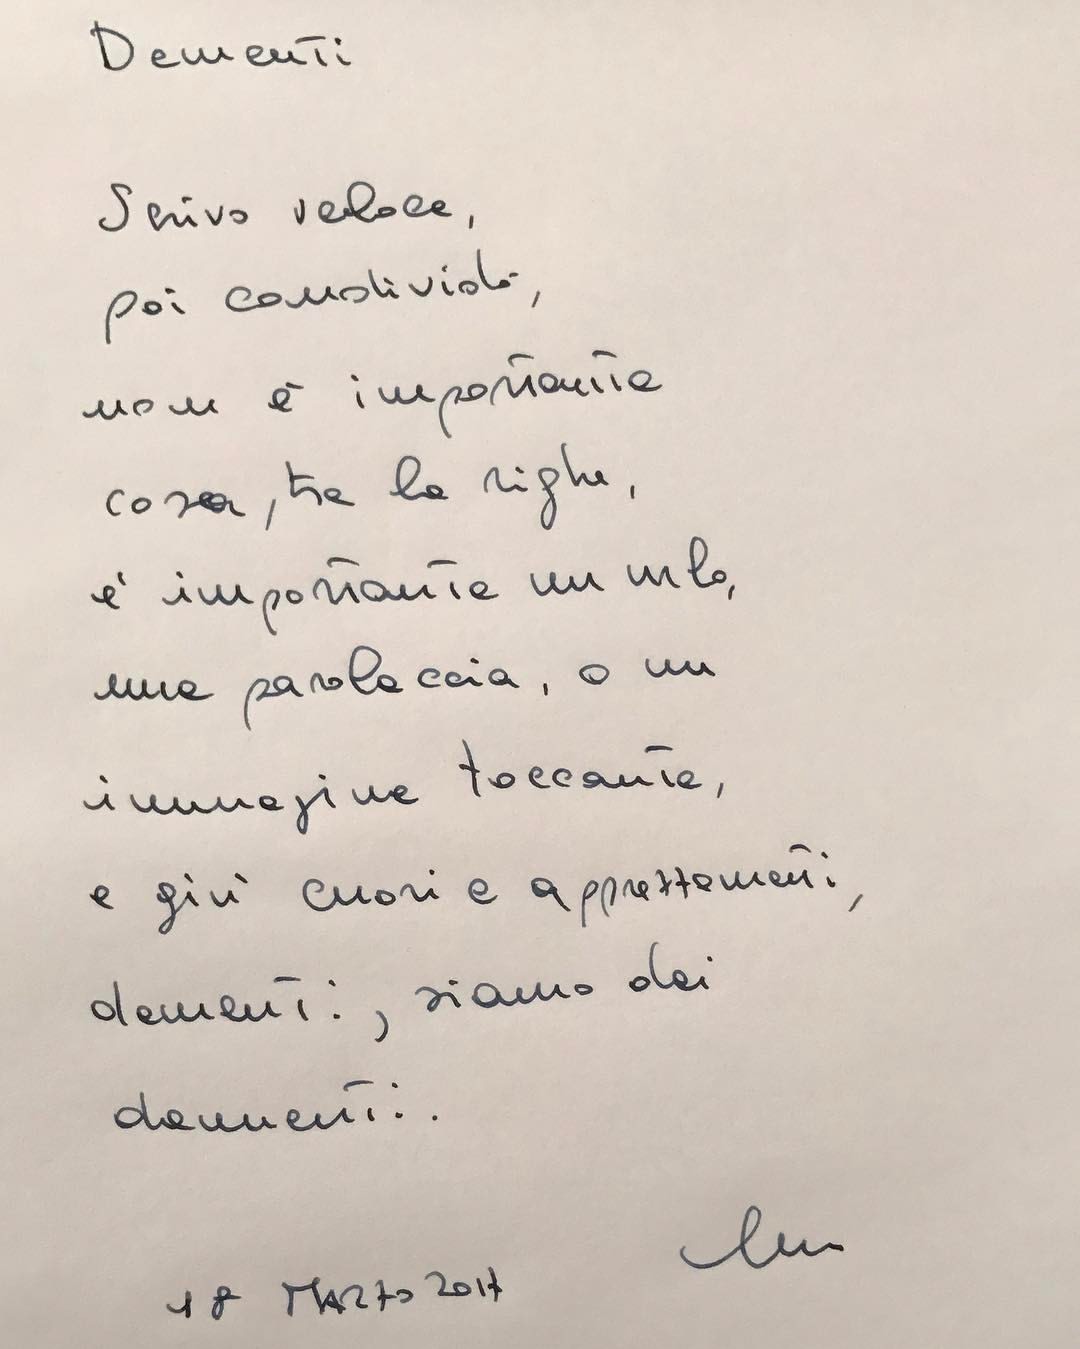 Dementi
Scrivo veloce,
poi condivido,
non è importante
cosa, tra le righe,
è importante un urlo,
una parolaccia, o un
immagine toccante,
e giù cuori e apprezzamenti,
dementi, siamo dei
dementi.
18 MARZO 2017